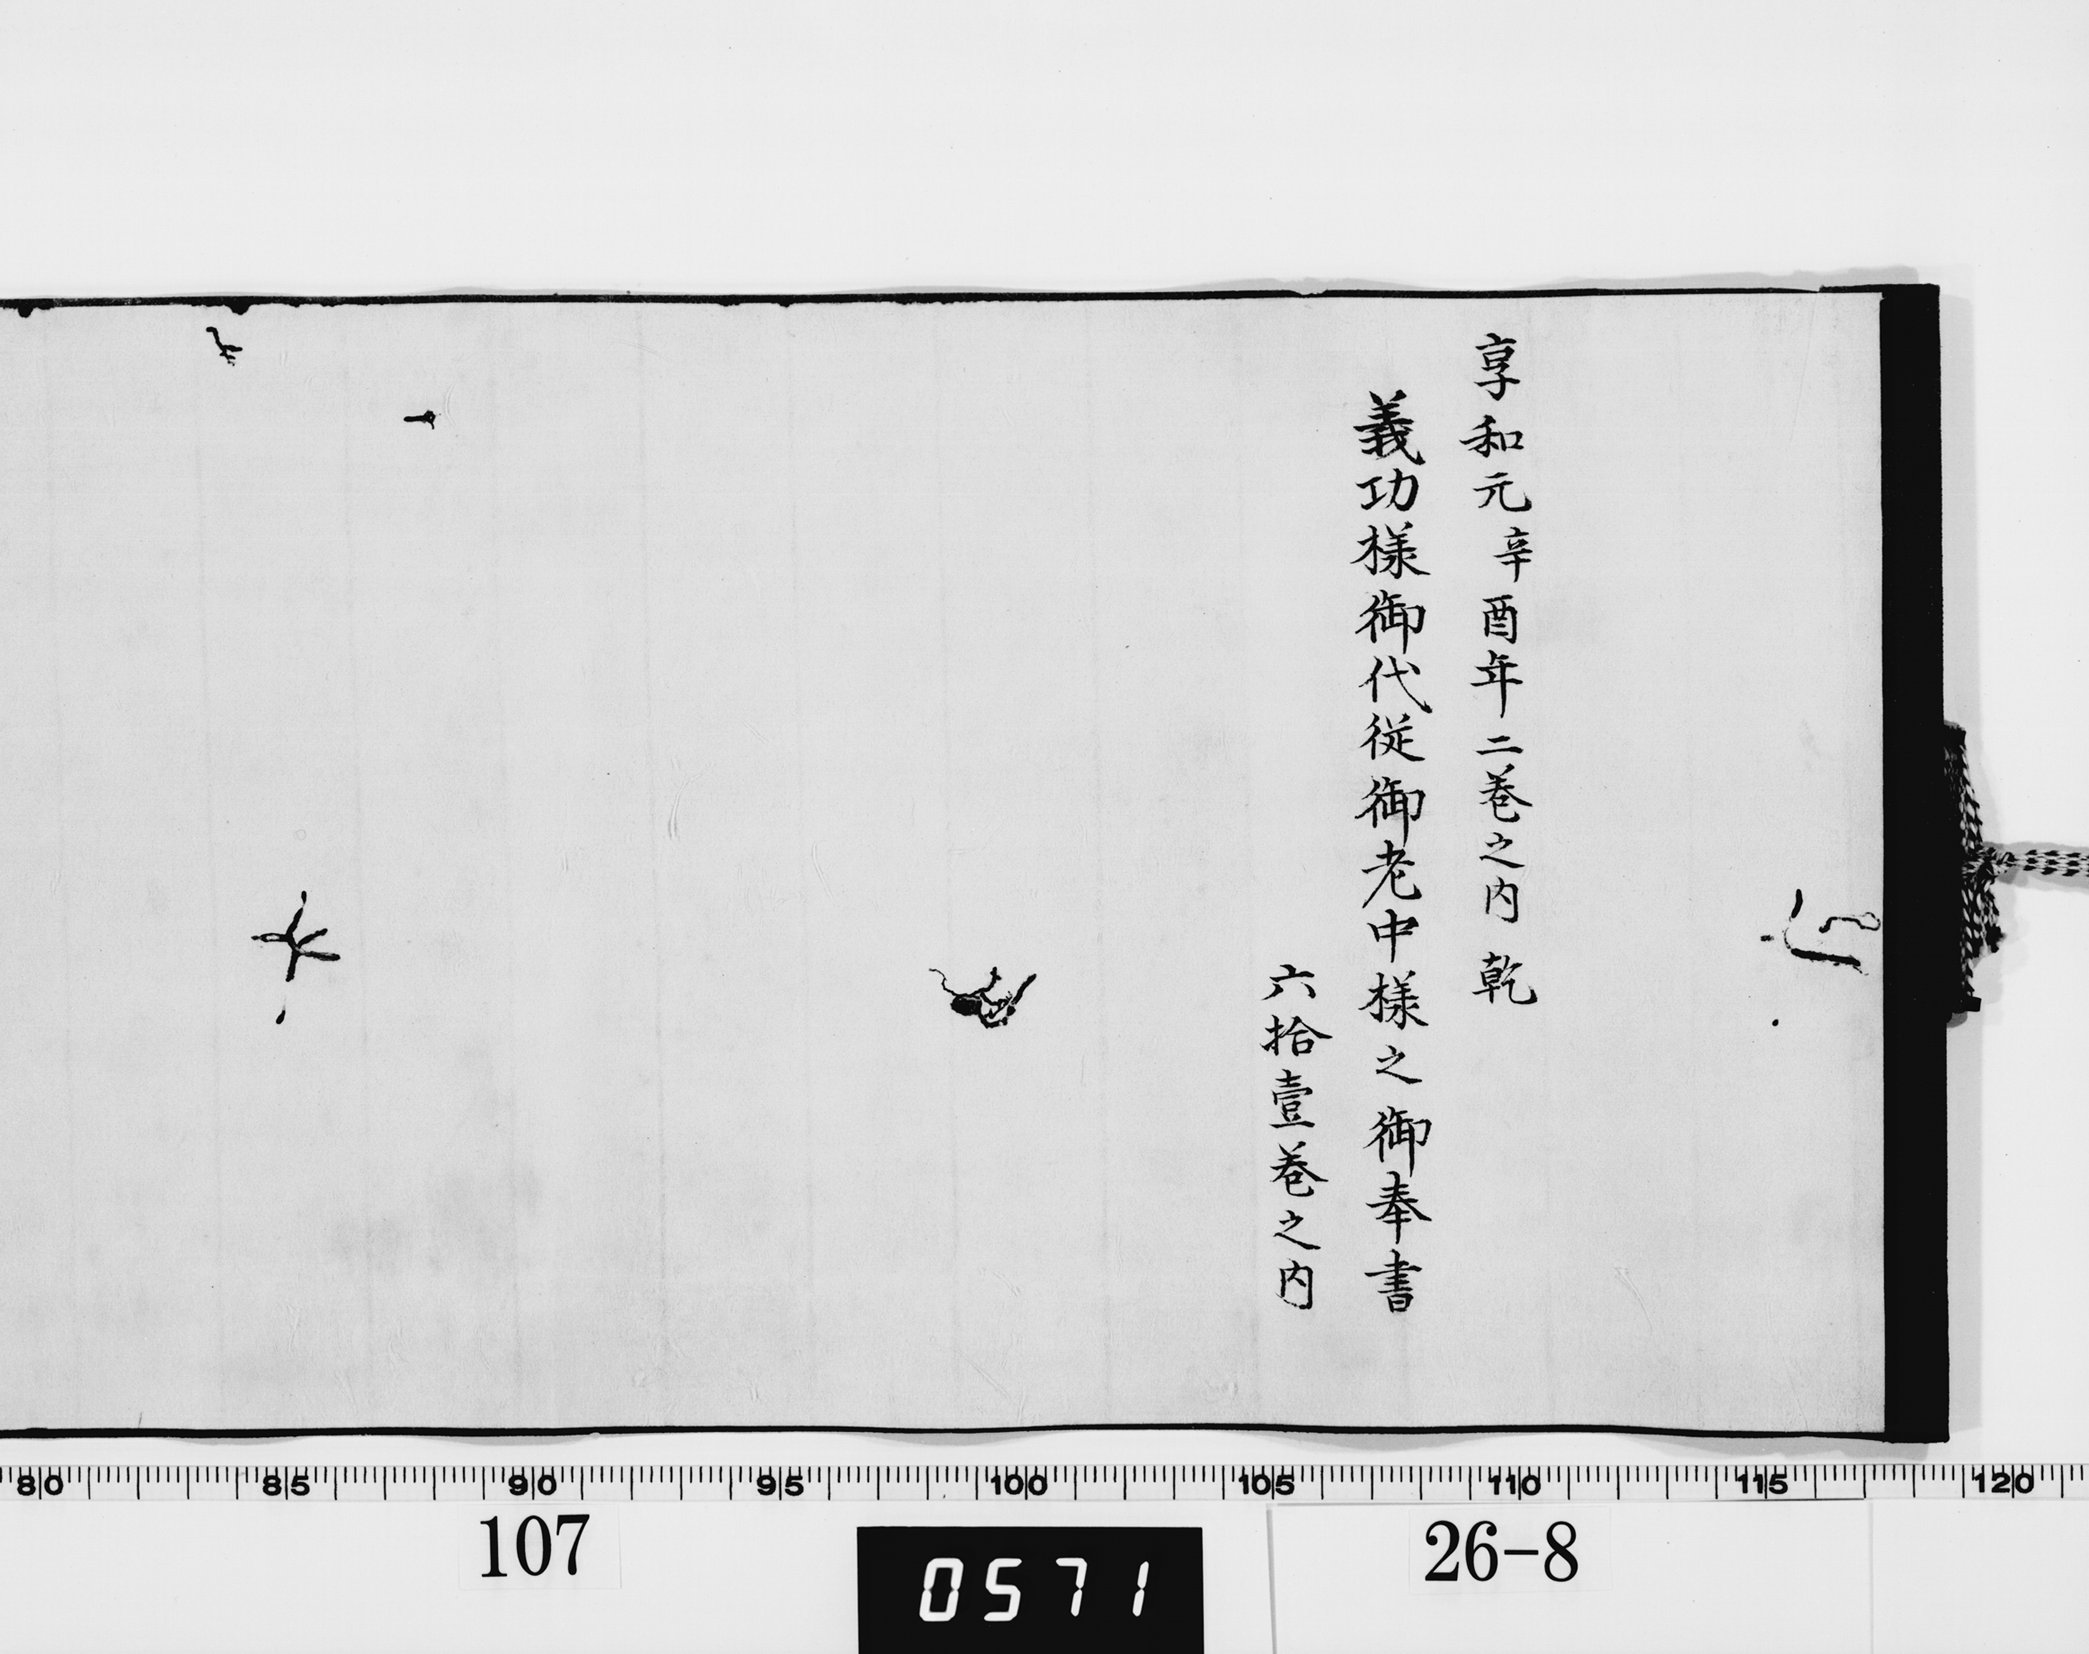 享和元辛酉年二巻之内 乾
義功様御代従御老中様之御奉書
六拾壹巻之内
80 85 90 95 100 105 110 115 120
107
0571
26-8